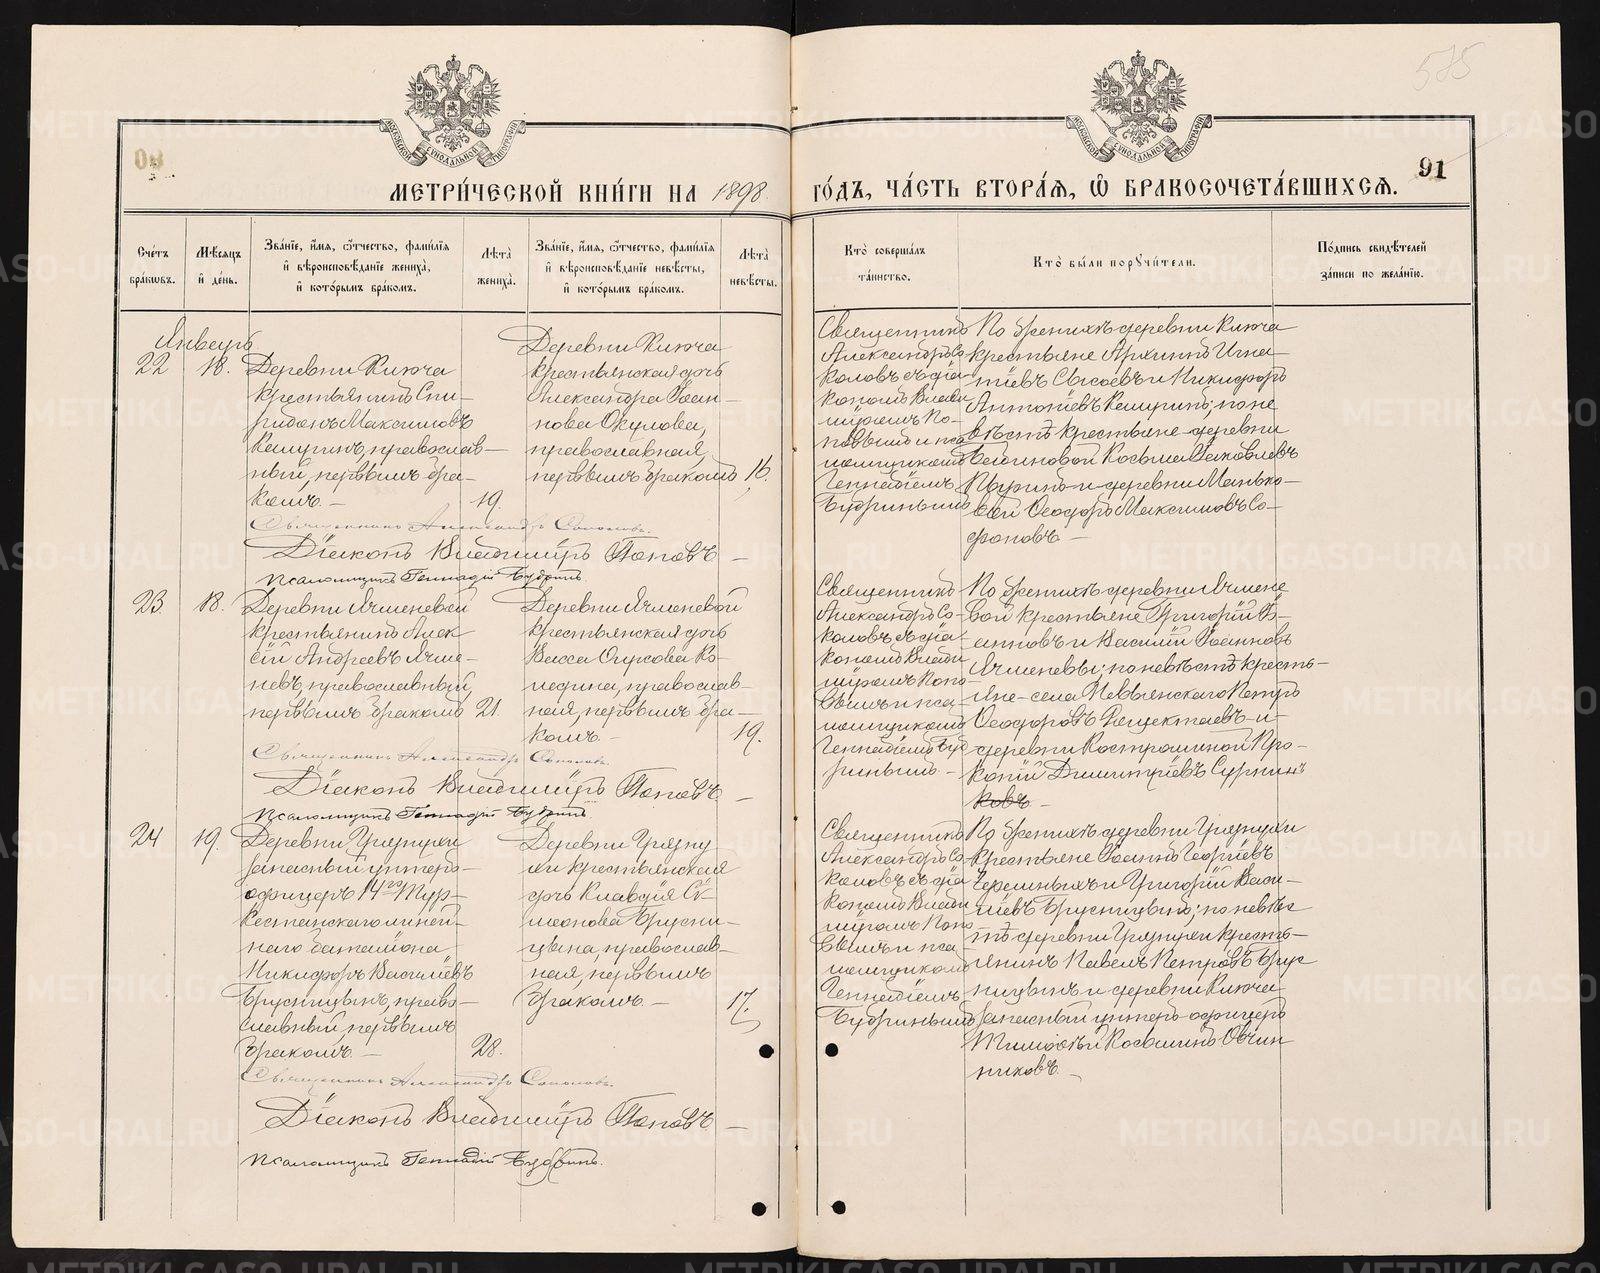 575
91
МЕТРИ́ЧЕСКОЙ КНИ́ГИ НА 1898 ГО́ДЪ, ЧА́СТЬ ВТОРА́Ѧ, Ѡ҆ БРАКОСОЧЕТА́ВШИХСѦ.
Сче́тъ бра́кѡвъ.
Мѣ́сяцъ и҆ де́нь.
Зва́нїе, и҆́мѧ, ѻ҆́тчество, фами́лїѧ и҆ вѣроисповѣ́данїе жениха̀, и҆ кото́рымъ бра́комъ.
Лѣ́та жениха̀.
Зва́нїе, и҆́мѧ, ѻ҆́тчество, фами́лїѧ и҆ вѣроисповѣ́данїе невѣ́сты, и҆ кото́рымъ бра́комъ.
Лѣ́та невѣ́сты.
Кто̀ соверша́лъ та́инство.
Кто̀ бы́ли пору́чи́тели.
По́дпись свидѣ́телей за́писи по жела́нїю.
Январь
22
18.
Деревни Ключа
крестьянинъ Спи-
ридонъ Максимовъ
Кашринъ, православ-
ный, первымъ бра-
комъ. -
19.
Деревни Ключа
крестьянская дочь
Александра Іоан-
нова Окулова,
православная,
первымъ бракомъ
16.
Священникъ
Александръ Со-
коловъ съ діа-
кономъ Влади
міромъ По-
повымъ и пса
ломщикомъ
Геннадіемъ
Будринымъ
По женихѣ деревни Ключа
крестьяне Архиппъ Игна-
тіевъ Сысоевъ и Никифоръ
Антоніевъ Кашринъ; по не
вѣстѣ крестьяне деревни
Козьма Іаковлевъ
и деревни Манько-
вой Ѳеодоръ Максимовъ Со-
фоновъ -
Священникъ Александръ Соколовъ.
Діаконъ Владиміръ Поповъ -
Псаломщикъ Геннадій Будринъ.
23.
18.
Деревни Ячменевой
крестьянинъ Алек
сій Андреевъ Ячме-
невъ, православный,
первымъ бракомъ
21.
Деревни Ячменевой
крестьянская дочь
Васса
православ-
ная, первымъ бра-
комъ. -
19.
Священникъ
Александръ Со-
коловъ съ діа-
кономъ Влади
міромъ Попо-
вымъ и пса-
ломщикомъ
Геннадіемъ Буд
ринымъ. -
По женихѣ деревни Ячмене
вой крестьяне Григорій
и Василій Іоанновъ
Ячменевы; по невѣстѣ кресть-
яне - села Невьянскаго Петръ
Ѳеодоровъ и
деревни Костромской Про-
копій Димитріевъ
ковъ -
Священникъ Александръ Соколовъ.
Діаконъ Владиміръ Поповъ -
Псаломщикъ Геннадій Будринъ.
24
19.
Деревни Грязнухи
запасный унтеръ-
офицеръ 14го Тур-
кестанскаго линей-
наго баталіона
Никифоръ Василіевъ
Брусницынъ, право-
славный, первымъ
бракомъ. -
28.
Деревни Грязну
хи крестьянская
дочь Клавдія Сѵ-
меонова Брусни-
цына, православ-
ная, первымъ
бракомъ. -
17.
Священникъ
Александръ Со
коловъ съ діа
кономъ Влади
міромъ Попо
вымъ и пса
ломщикомъ
Геннадіемъ
Будринымъ
По женихѣ деревни Грязнухи
крестьяне Іоаннъ Георгіевъ
Черемныхъ и Григорій Васи-
ліевъ Брусницынъ; по невѣс
тѣ деревни Грязнухи кресть-
янинъ Павелъ Петровъ Брус
ницынъ и деревни Ключа
запасный унтеръ-офицеръ
Тимоѳей Козьминъ Овчин
никовъ. -
Священникъ Александръ Соколовъ.
Діаконъ Владиміръ Поповъ -
Псаломщикъ Геннадій Будринъ.
METRIKI.GASO-URAL.RU